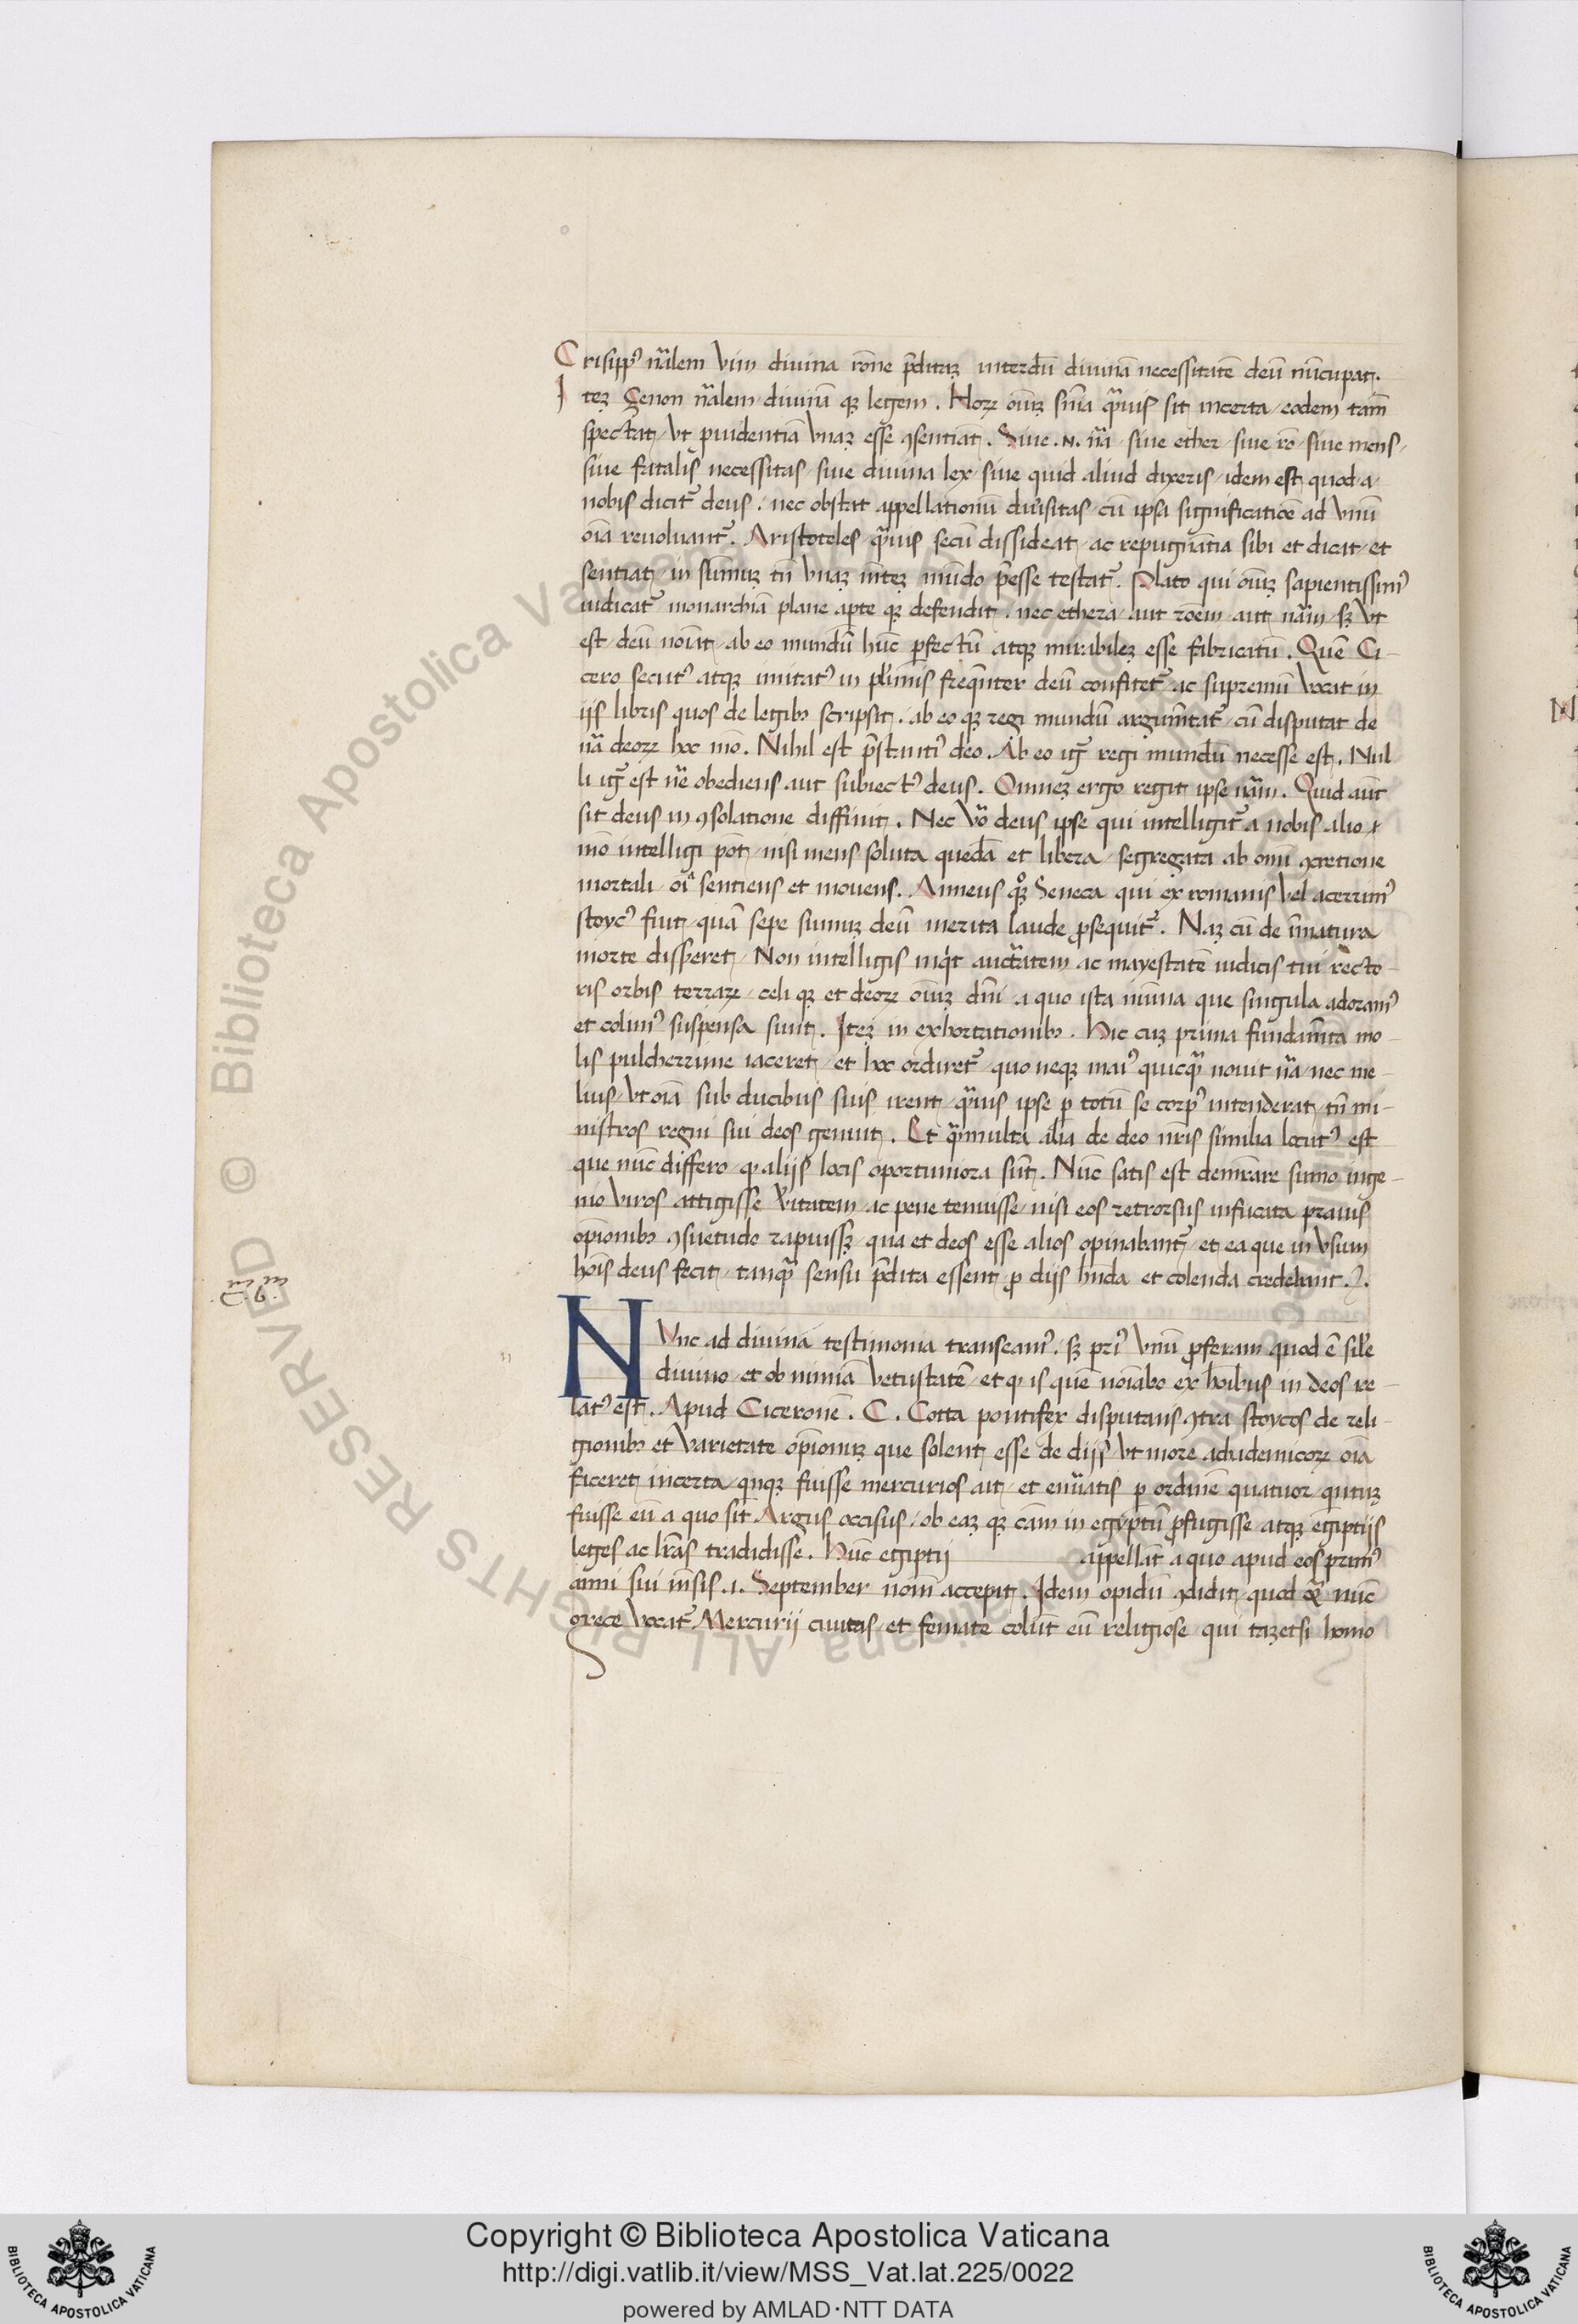 Crisipp⁹ nãlem vim diuina rõne p̃ditaꝫ interdũ diuinã necessitatẽ deũ nũcupat.
Iteꝫ Zenon nãlem diuinã qꝫ legem. Hoꝝ oĩuꝫ snĩa q̃uis sit incerta / eodem tam̃
spectat / vt ꝓuidentiã vnaꝫ esse ꝯsentiãt. Siue .n. nã / siue ether / siue rõ / siue mens /
siue fatalis necessitas / siue diuina lex / siue quid aliud dixeris / idem est quod a
nobis dicit᷑ deus. nec obstat appellationũ diũsitas / cũ ipsa significatiõe ad vnũ
oĩa reuoluant᷑. Aristoteles / q̃uis secũ dissideat / ac repugnãtia sibi et dicat / et
sentiat / in sũmuꝫ tñ vnaꝫ mẽteꝫ mũdo p̃esse testat᷑. Plato qui oĩuꝫ sapientissim⁹
iudicat᷑ monarchiã plane apte qꝫ defendit. nec ethera / aut rõem / aut nãm / sꝫ vt
est / deũ noĩat / ab eo mundũ hũc ꝑfectũ atqꝫ mirabileꝫ esse fabricatũ. Quẽ Ci-
cero secut⁹ atqꝫ imitat⁹ in pl'imis freq̃nter deũ confitet᷑ ac supremũ vocat in
ijs libris quos de legibꝫ scripsit. ab eo qꝫ regi mundũ argum̃tat᷑ / cũ disputat de
nã deoꝝ hoc mõ. Nihil est p̃stanti⁹ deo. Ab eo ig᷑ regi mundũ necesse est. Nul
li ig᷑ est nẽ obediens aut subiect⁹ deus. Omneꝫ ergo regit ipse nãm. Quid aũt
sit deus in ꝯsolatione diffinit. Nec võ deus ipse qui intelligit᷑ a nobis alio
mõ intelligi põt / nisi mens soluta quedã et libera / segregata ab omĩ ꝯcretione
mortali / oĩa sentiens et mouens. Anneus qꝫ Seneca qui ex romanis vel acerrim⁹
stoyc⁹ fuit / quã sepe sũmuꝫ deũ merita laude ꝓsequit᷑. Naꝫ cũ de ĩmatura
morte dissẽret / Non intelligis inqt auctãtem ac mayestatẽ iudicis tui recto-
ris orbis terraꝝ / celi qꝫ et deoꝝ oĩuꝫ dñi a quo ista nũina que singula adoram⁹
et colim⁹ suspensa sunt. Iteꝫ in exhortationibꝫ. Hic cuꝫ prima fundam̃ta mo-
lis pulcherrime iaceret / et hoc ordiret᷑ / quo neqꝫ mai⁹ quicq̃ nouit nã / nec me-
lius / vt oĩa sub ducibus suis irent / q̃uis ipse ꝑ totũ se corp⁹ intenderat / tñ mi-
nistros regni sui deos genuit. Et q̃multa alia de deo nr̃is similia locut⁹ est
que nũc differo / ꝙ alijs locis oportuniora sũt. Nũc satis est demr̃are sũmo inge-
nio viros attigisse v̾itatem / ac pene tenuisse / nisi eos retrorsus infucata prauis
opĩonibꝫ ꝯsuetudo rapuissꝫ / qua et deos esse alios opinabant᷑ / et ea que in vsum
hoĩs deus fecit / tanq̃ sensu p̃dita essent / ꝓ dijs hñda et colenda credebant.
NVnc ad diuina testimonia transeam⁹. sꝫ pri⁹ vnũ ꝓferam quod ẽ sil'e
diuino / et ob nimiã vetustatẽ / et ꝙ is quẽ noĩabo ex hoĩbus in deos re-
lat⁹ est. Apud Ciceronẽ. C. Cotta pontifex disputans ꝯtra stoycos de reli-
gionibꝫ et varietate opĩonuꝫ que solent esse de dijs / vt more achademicoꝝ oĩa
faceret incerta / qnqꝫ fuisse mercurios ait / et enũatis ꝑ ordinẽ quatuor / qntuꝫ
fuisse eũ a quo sit Argus occisus / ob eaꝫ qꝫ cãm in egyptũ ꝓfugisse / atqꝫ egiptijs
leges ac lr̃as tradidisse. Hũc egiptij appellãt a quo apud eos prim⁹
anni sui mẽsis .i. September nom̃ accepit. Idem opidũ ꝯdidit / quod nũc
grece vocat᷑ Mercurij ciuitas / et femate colũt eũ religiose / qui taꝫetsi homo
Copyright © Biblioteca Apostolica Vaticana
http://digi.vatlib.it/view/MSS_Vat.lat.225/0022
powered by AMLAD·NTT DATA